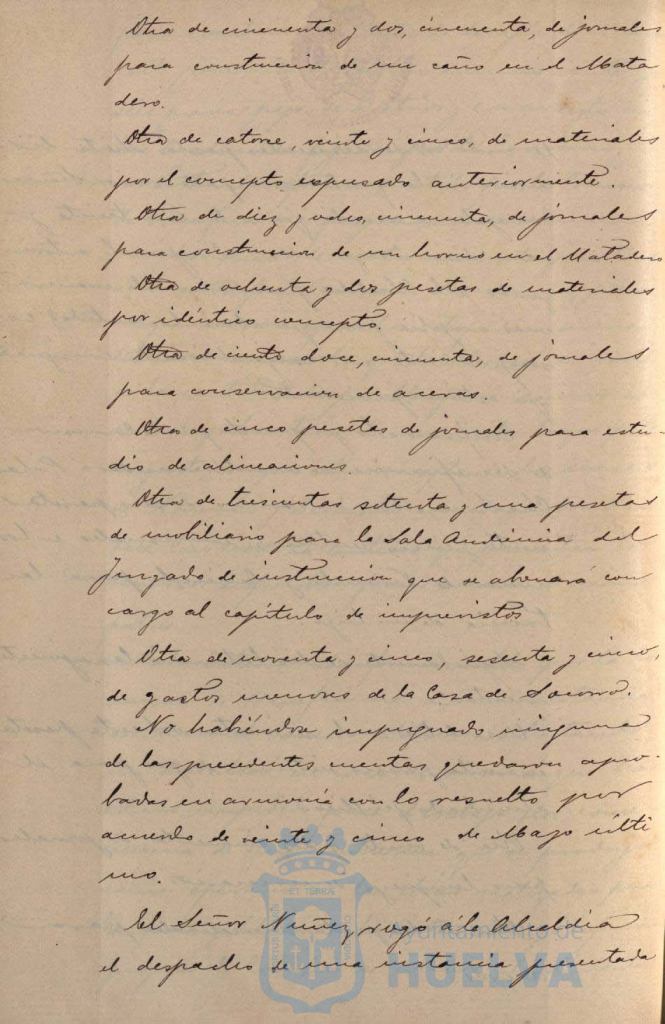 Otra de cincuenta y dos, cincuenta, de jornales
para construccion de un caño en el Mata
dero.
Otra de catorce, veinte y cinco, de materiales
por el concepto expresado anteriormente.
Otra de diez y ocho, cincuenta, de jornales
para construccion de un horno en el Matadero
Otra de ochenta y dos pesetas de materiales
por idéntico concepto.
Otra de ciento doce, cincuenta, de jornales
para conservacion de aceras.
Otra de cinco pesetas de jornales para estu-
dio de alineaciones.
Otra de trescientas setenta y una pesetas
de mobiliario para la Sala Audiencia del
Juzgado de instruccion que se abonará con
cargo al capítulo de imprevistos
Otra de noventa y cinco, sesenta y cinco,
de gastos menores de la Casa de Socorro.
No habiéndose impugnado ninguna
de las precedentes cuentas quedaron apro-
badas en armonía con lo resuelto por
acuerdo de veinte y cinco de Mayo últi
mo.
El Señor Nuñez rogó á la Alcaldia
el despacho de una instancia presentada
Ayuntamiento de
HUELVA